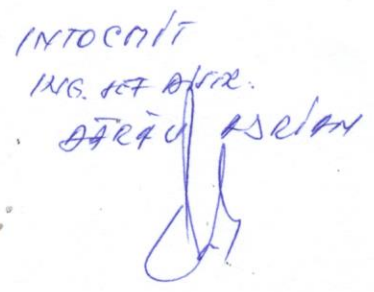 INTOCMIT
ING. SEF ADIR.
DĂRĂU ADRIAN